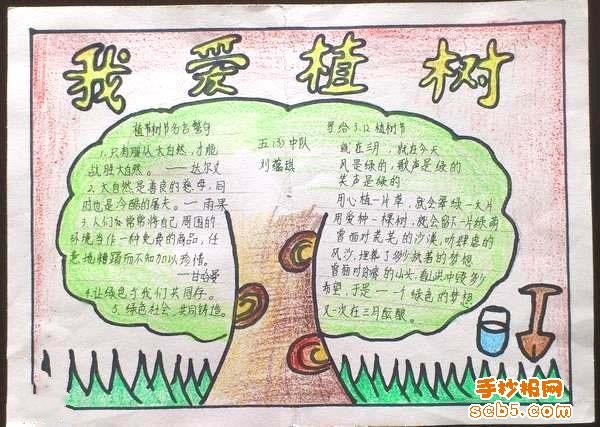 我爱植树
植树节名言警句
1.只有顺从大自然,才能
战胜大自然。——达尔文
2.大自然是善良的慈母,同
时也是冷酷的屠夫。——雨果
3.人们常常将自己周围的
环境当作一种免费的商品,任
意地糟蹋而不知加以珍惜。
——甘哈曼
4.让绿色与我们共同存。
5.绿色社会,共同铸造。
五(3)中队
刘蕴琪
写给3.12植树节
就在三月,就在今天
风是绿的,歌声是绿的
笑声是绿的
用心植一片草,就会翠绿一大片
用爱种一棵树,就会留下一片绿荫
曾面对茫茫的沙漠,听肆虐的
风沙,埋葬了多少执着的梦想
曾面对贫瘠的山头,看山洪冲毁多少
希望,于是一个绿色的梦想
又一次在三月酝酿。
手抄报网
scb5.com